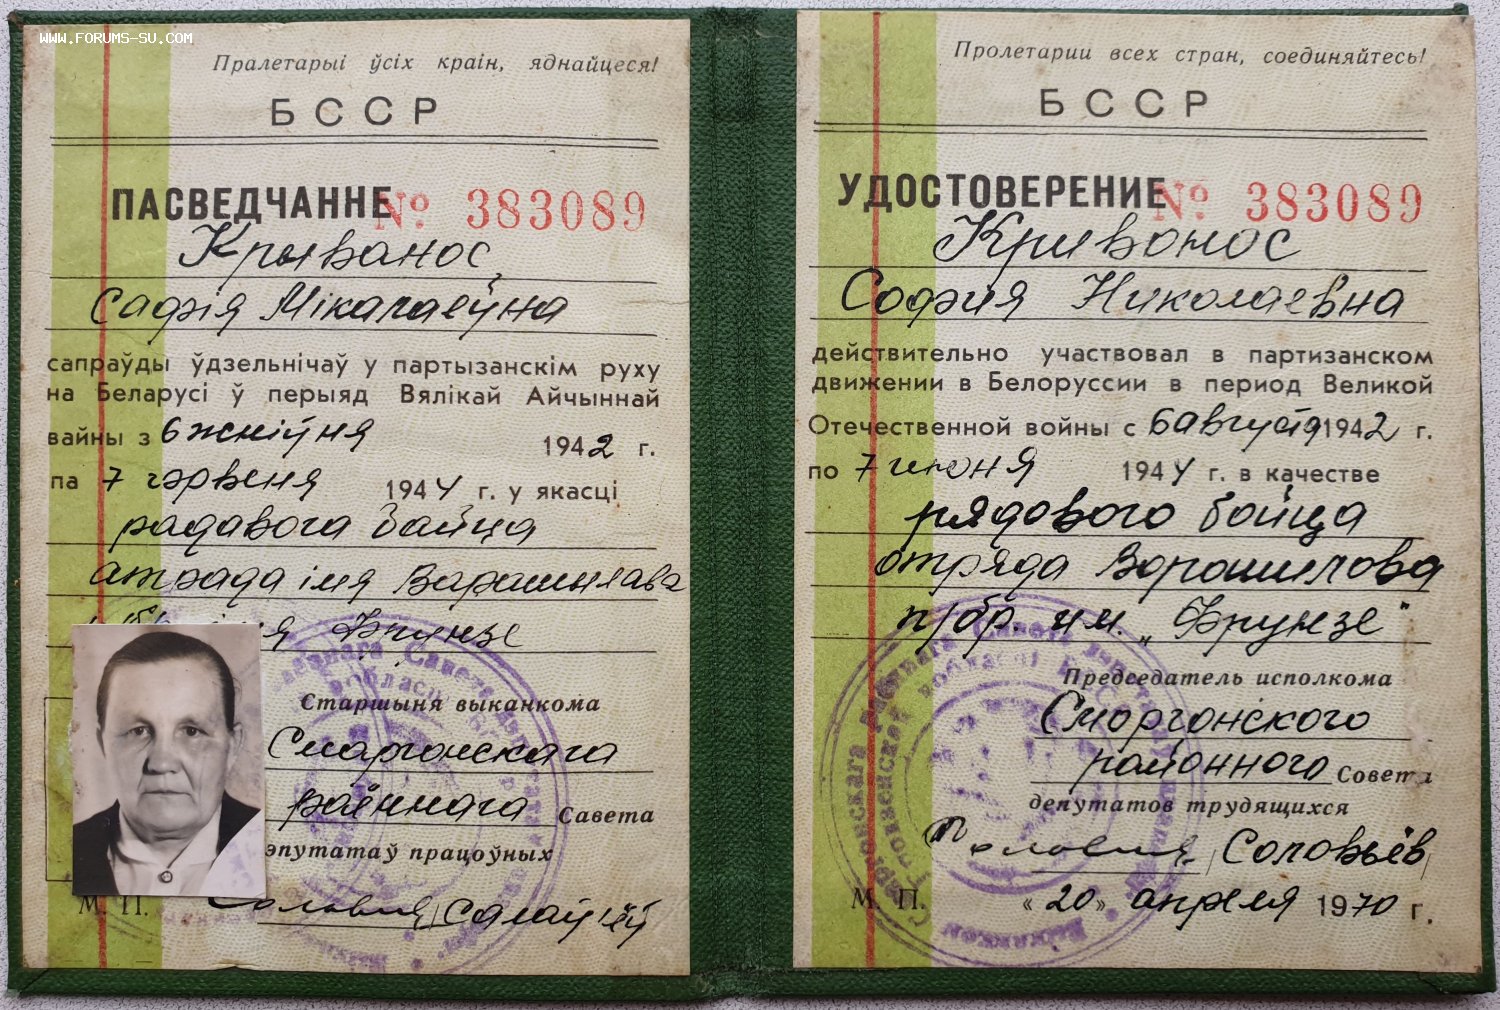 www.forums-su.com
Пралетарыі ўсіх краін, яднайцеся!
БССР
ПАСВЕДЧАННЕ № 383089
Крыванос
Сафія Мікалаеўна
сапраўды ўдзельнічаў у партызанскім руху
на Беларусі ў перыяд Вялікай Айчыннай
вайны з 6 жніўня 1942 г.
па 7 чэрвеня 1944 г. у якасці
радавога байца
атрада імя Варашылава
імя Фрунзе
Старшыня выканкома
Смаргонскага
раённага Савета
эпутатаў працоўных
М. П.
Салаўёў
Пролетарии всех стран, соединяйтесь!
БССР
УДОСТОВЕРЕНИЕ № 383089
Кривонос
София Николаевна
действительно участвовал в партизанском
движении в Белоруссии в период Великой
Отечественной войны с 6 августа 1942 г.
по 7 июня 1944 г. в качестве
рядового бойца
отряда Ворошилова
п/бр. им. „Фрунзе"
Председатель исполкома
Сморгонского
районного Совета
депутатов трудящихся
/Соловьёв/
М. П. «20» апреля 1970 г.